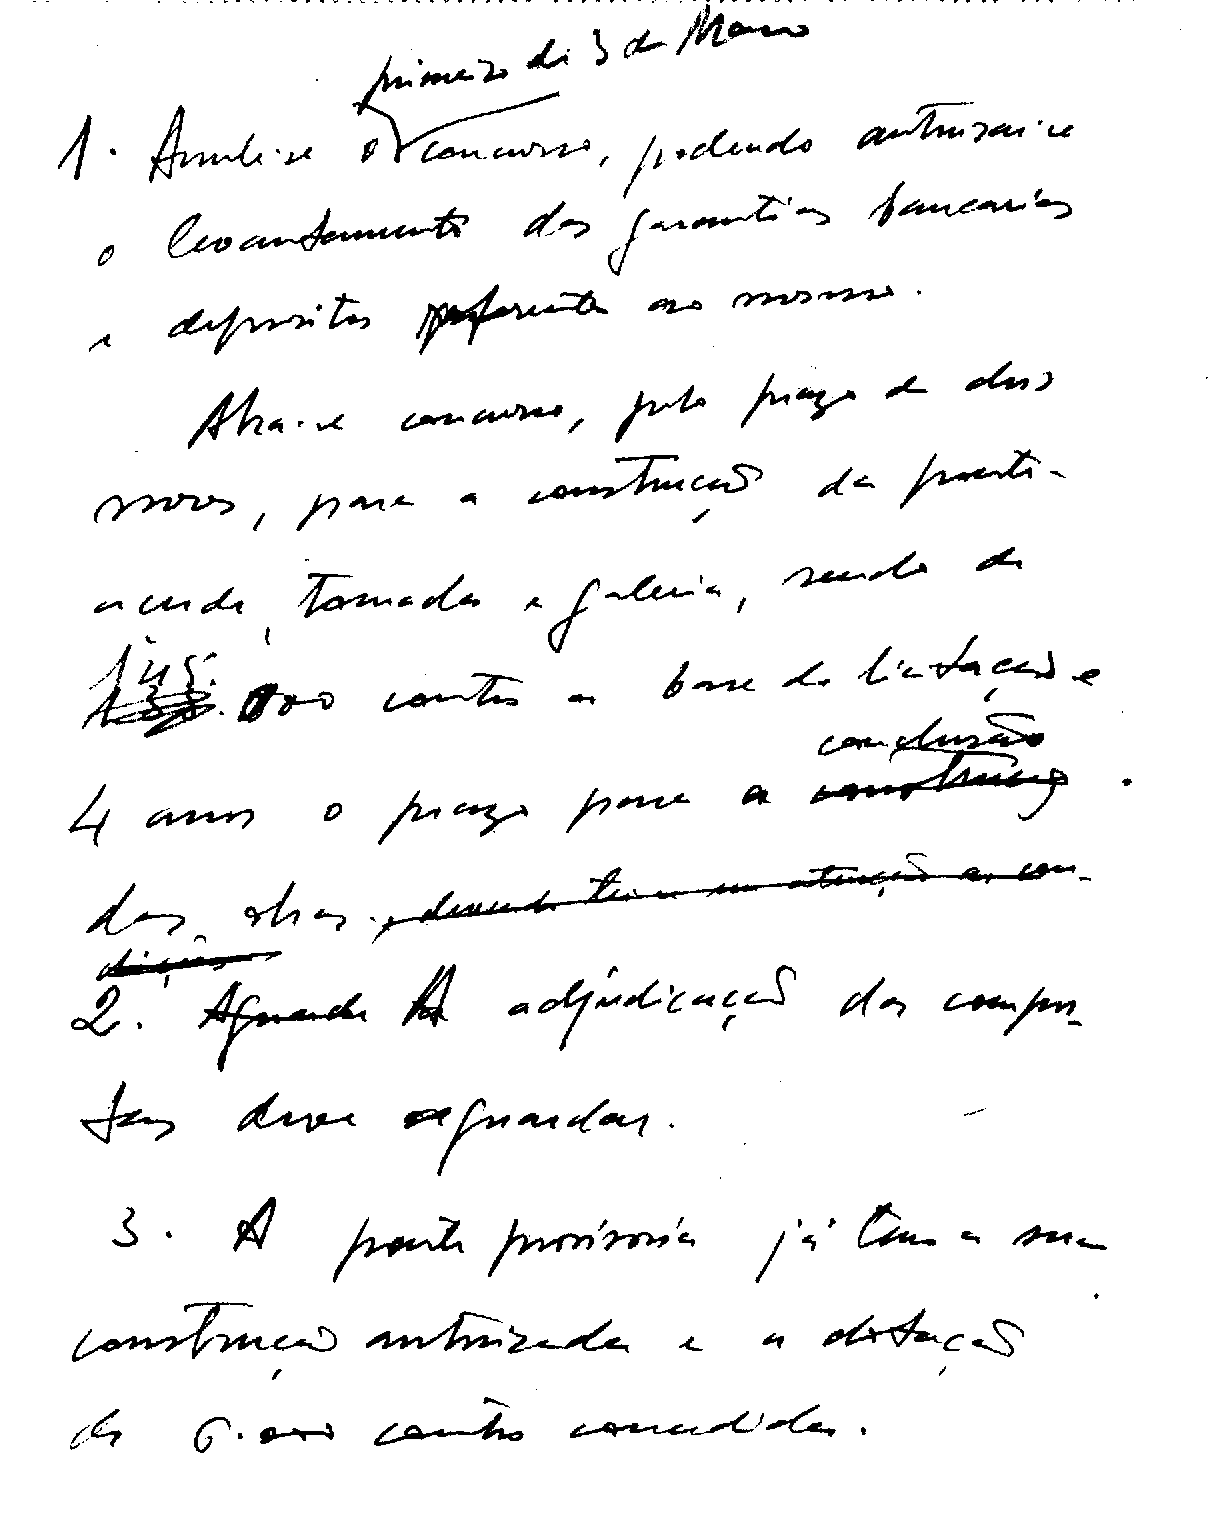 primeiro de 3 de Março
1. Anule-se o concurso, podendo autorizar-se
o levantamento das garantias bancarias
e depositos referente ao mesmo.
Abra-se concurso, pelo prazo de dois
meses, para a construção da ponte-
açude, tomadas e galeria, sendo de
145.000 contos a base de licitação e
4 anos o prazo para a construção conclusão
das obras, devendo ter-se em atenção as con-
dições
2. Aguarde A adjudicação das compor-
tas deve aguardar.
3. A ponte provisoria já tem a sua
construção autorizada e a dotação
de 6.000 contos concedida.